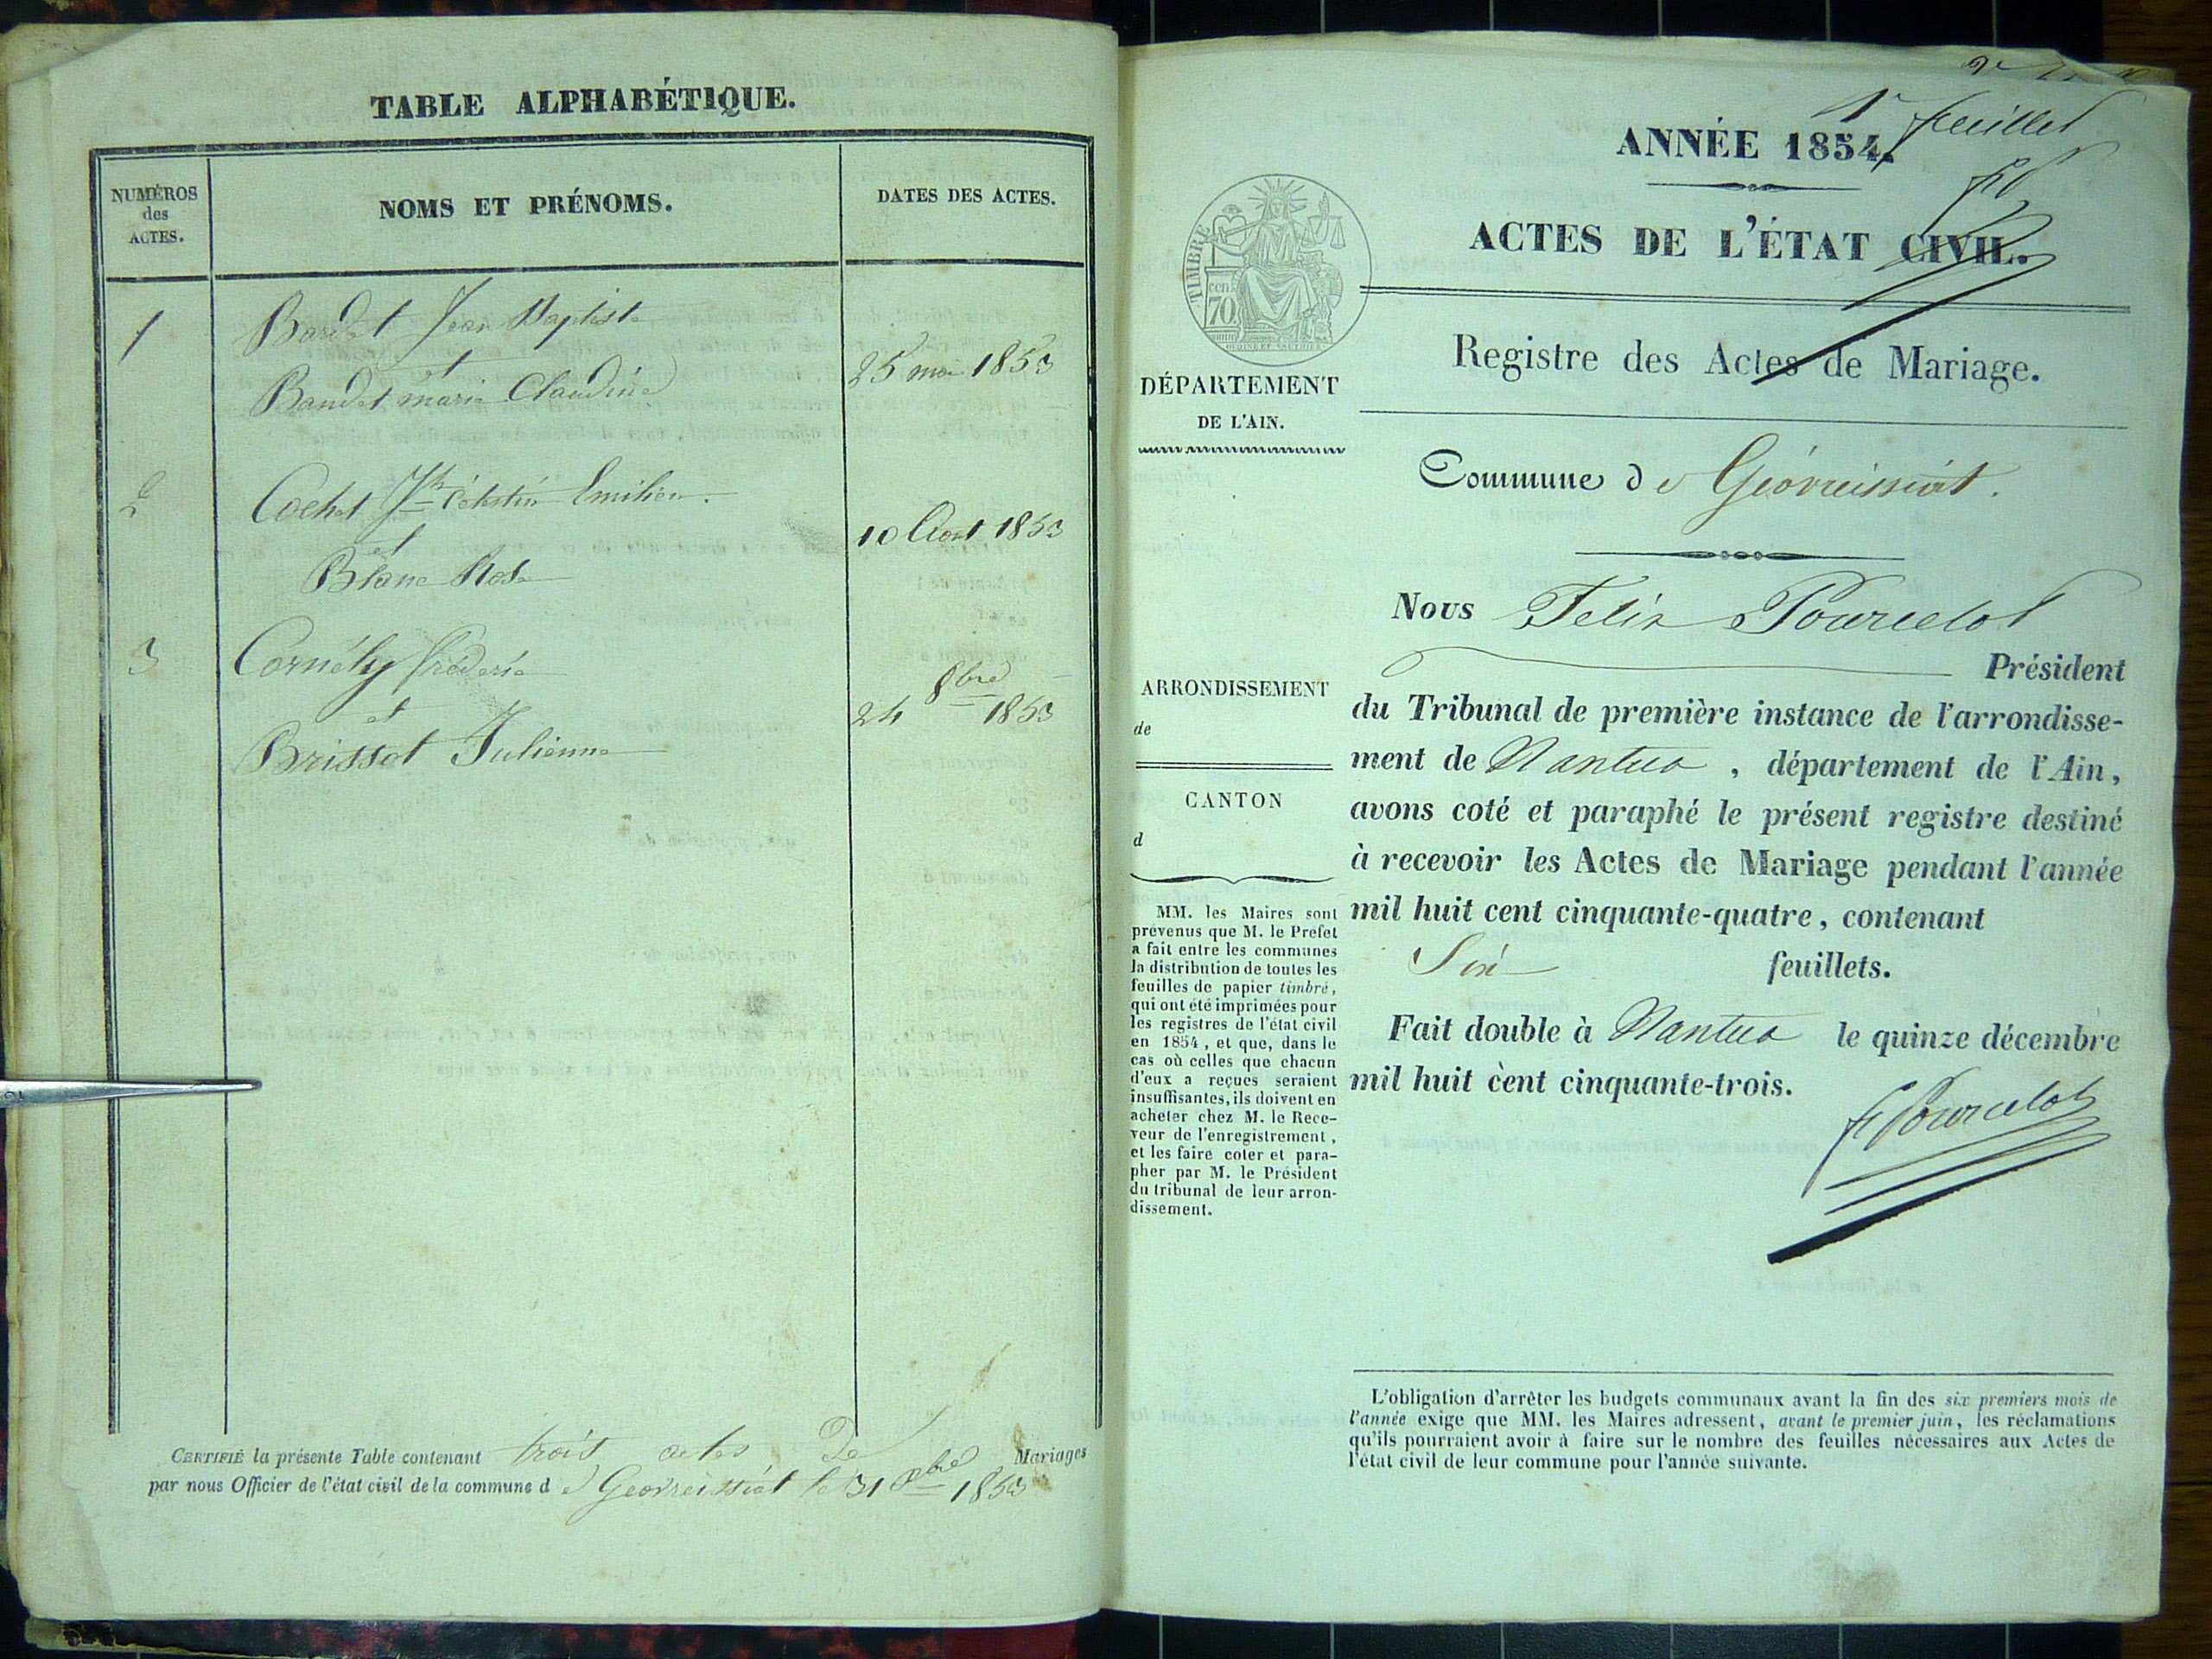 TABLE ALPHABÉTIQUE.
NUMÉROS
des
ACTES.
NOMS ET PRÉNOMS.
DATES DES ACTES.
1
Jean Baptiste
et
Baudet marie Claudine
25 mai 1853
2
Cochet Jh Célestin Emilien.
et
Blanc Rose
10 Aout 1853
3
Cornély frédéric
et
Brissot Julienne
24 8bre 1853
CERTIFIÉ la présente Table contenant trois actes de Mariages
par nous Officier de l'état civil de la commune de Geovreissiat le 31 Xbre 1853
1r feuillet
ANNÉE 1854.
ACTES DE L'ÉTAT CIVIL.
Registre des Actes de Mariage.
TIMBRE
70 cen
DÉPARTEMENT
DE L'AIN.
Commune de Géovreissiat.
Nous Felix Pourcelot
Président
du Tribunal de première instance de l'arrondisse-
ment de Nantua, département de l'Ain,
avons coté et paraphé le présent registre destiné
à recevoir les Actes de Mariage pendant l'année
mil huit cent cinquante-quatre, contenant
Six feuillets.
Fait double à Nantua le quinze décembre
mil huit cent cinquante-trois.
f Pourcelot
ARRONDISSEMENT
de
CANTON
d
MM. les Maires sont
prévenus que M. le Préfet
a fait entre les communes
la distribution de toutes les
feuilles de papier timbré,
qui ont été imprimées pour
les registres de l'état civil
en 1854, et que, dans le
cas où celles que chacun
d'eux a reçues seraient
insuffisantes, ils doivent en
acheter chez M. le Rece-
veur de l'enregistrement,
et les faire coter et para-
pher par M. le Président
du tribunal de leur arron-
dissement.
L'obligation d'arrêter les budgets communaux avant la fin des six premiers mois de
l'année exige que MM. les Maires adressent, avant le premier juin, les réclamations
qu'ils pourraient avoir à faire sur le nombre des feuilles nécessaires aux Actes de
l'état civil de leur commune pour l'année suivante.